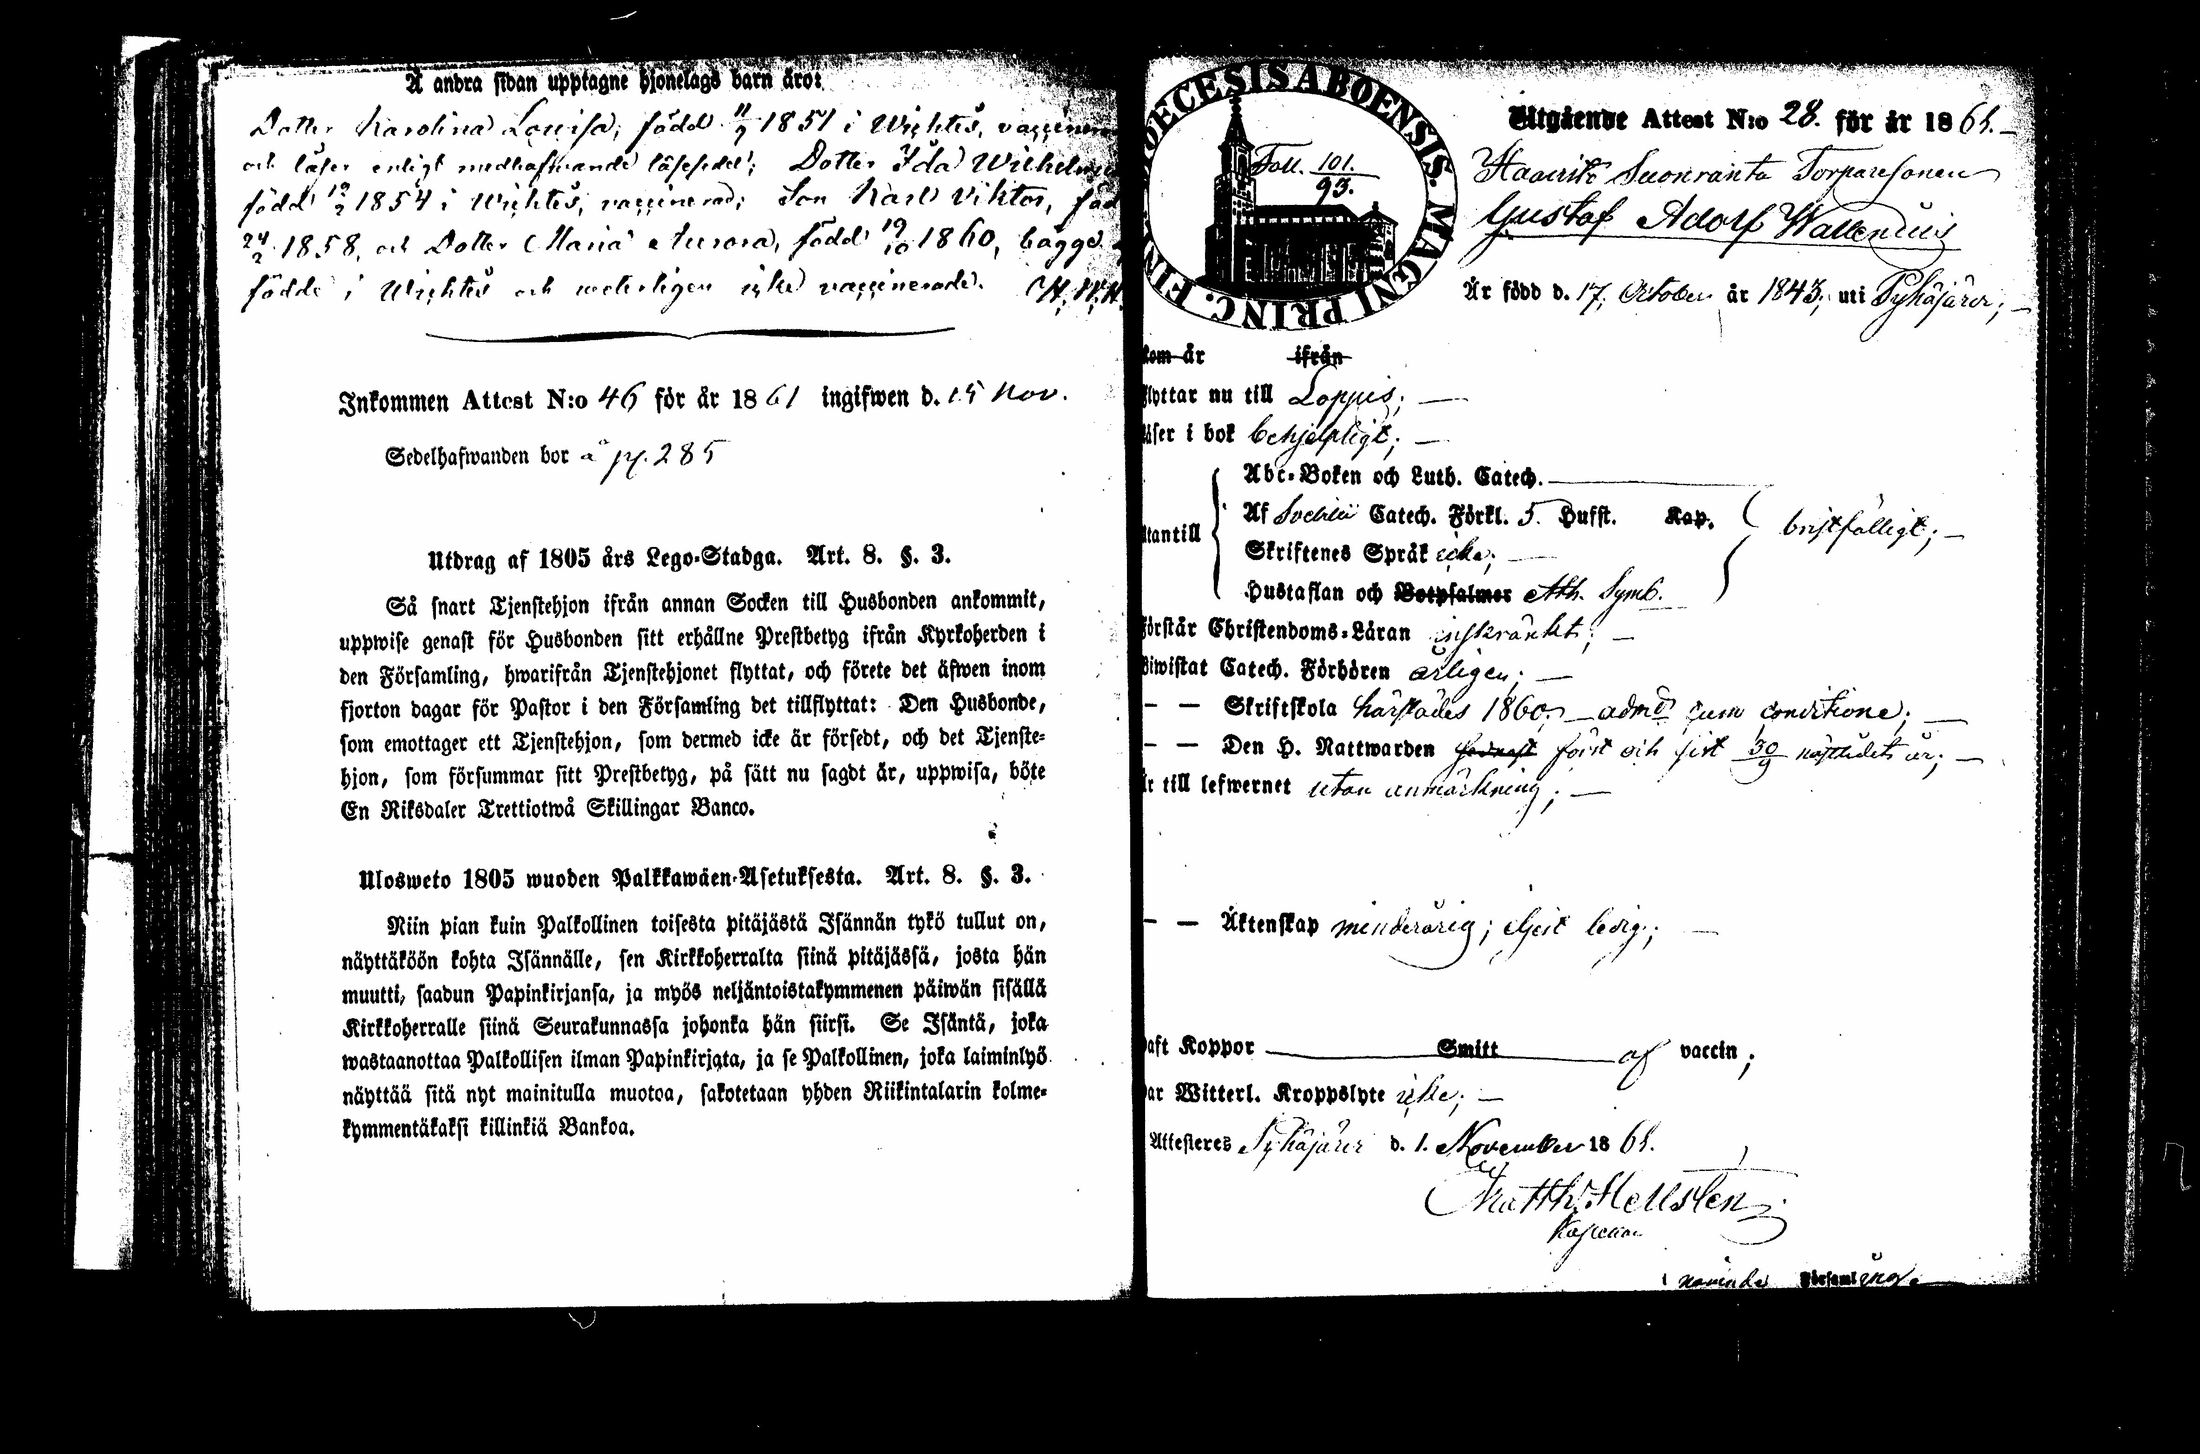 Å andra sidan upptagne hjonelags barn äro:
Dotter Karolina Lovisa, född 11/9 1851 i Wichtis,
och läser enligt medhafwande läsesedel; Dotter Ida
född 19/2 1854 i Wichtis, vaccinerad; Son Karl Viktor,
24/2 1858, och Dotter Maria Aurora, född 19/10 1860, bägge
födde i Wichtis och weterligen icke vaccinerade.
Inkommen Attest N:o 46 för år 1861 ingifwen d. 15 Nov.
Sedelhafwanden bor å p. 285
Utdrag af 1805 års Lego-Stadga. Art. 8. §. 3.
Så snart Tjenstehjon ifrån annan Socken till Husbonden ankommit,
uppwise genast för Husbonden sitt erhållne Prestbetyg ifrån Kyrkoherden i
den Församling, hwarifrån Tjenstehjonet flyttat, och förete det äfwen inom
fjorton dagar för Pastor i den Församling det tillflyttat: Den Husbonde,
som emottager ett Tjenstehjon, som dermed icke är försedt, och det Tjenste-
hjon, som försummar sitt Prestbetyg, på sätt nu sagdt är, uppwisa, böte
En Riksdaler Trettiotwå Skillingar Banco.
Ulosweto 1805 wuoden Palkkawäen-Asetuksesta. Art. 8. §. 3.
Niin pian kuin Palkollinen toisesta pitäjästä Isännän tykö tullut on,
näyttäköön kohta Isännälle, sen Kirkkoherralta siinä pitäjässä, josta hän
muutti, saadun Papinkirjansa, ja myös neljäntoistakymmenen päiwän sisällä
Kirkkoherralle siinä Seurakunnassa johonka hän siirsi. Se Isäntä, joka
wastaanottaa Palkollisen ilman Papinkirjata, ja se Palkollinen, joka laiminlyö
näyttää sitä nyt mainitulla muotoa, sakotetaan yhden Riikintalarin kolme-
kymmentäkaksi killinkiä Bankoa.
DECESIS ABOENSIS. MAGNI PRINC. FIN
Foll. 101.
93.
Utgående Attest N:o 28. för år 1861.
Haaviko Suonranta Torparesonen
Gustaf Adolf Wallenius
Är född d. 17. October år 1843, uti Pyhäjärvi;
kom år ifrån
flyttar nu till Loppis;
läser i bok behjelpligt;
Abc-Boken och Luth. Catech.
Af Svebilii Catech. Förkl. 5. Hufst. Kap. bristfälligt;
utantill
Skriftenes Språk icke;
Hustaflan och Botpsalmer Ath. Symb.
förstår Christendoms-Läran inskränkt;
Biwistat Catech. Förhören årligen;
— — Skriftskola härstädes 1860; adm. cum conditione;
— — Den H. Nattwarden först och sist 30/9 nästledet år;
Är till lefwernet utan anmärkning;
— — Äktenskap minderårig; ledig;
haft Koppor Smitt af vaccin;
har Witterl. Kroppslyte icke;
Attesteres Pyhäjärvi d. 1. November 1861.
Matth. Hellsten
Kapellan